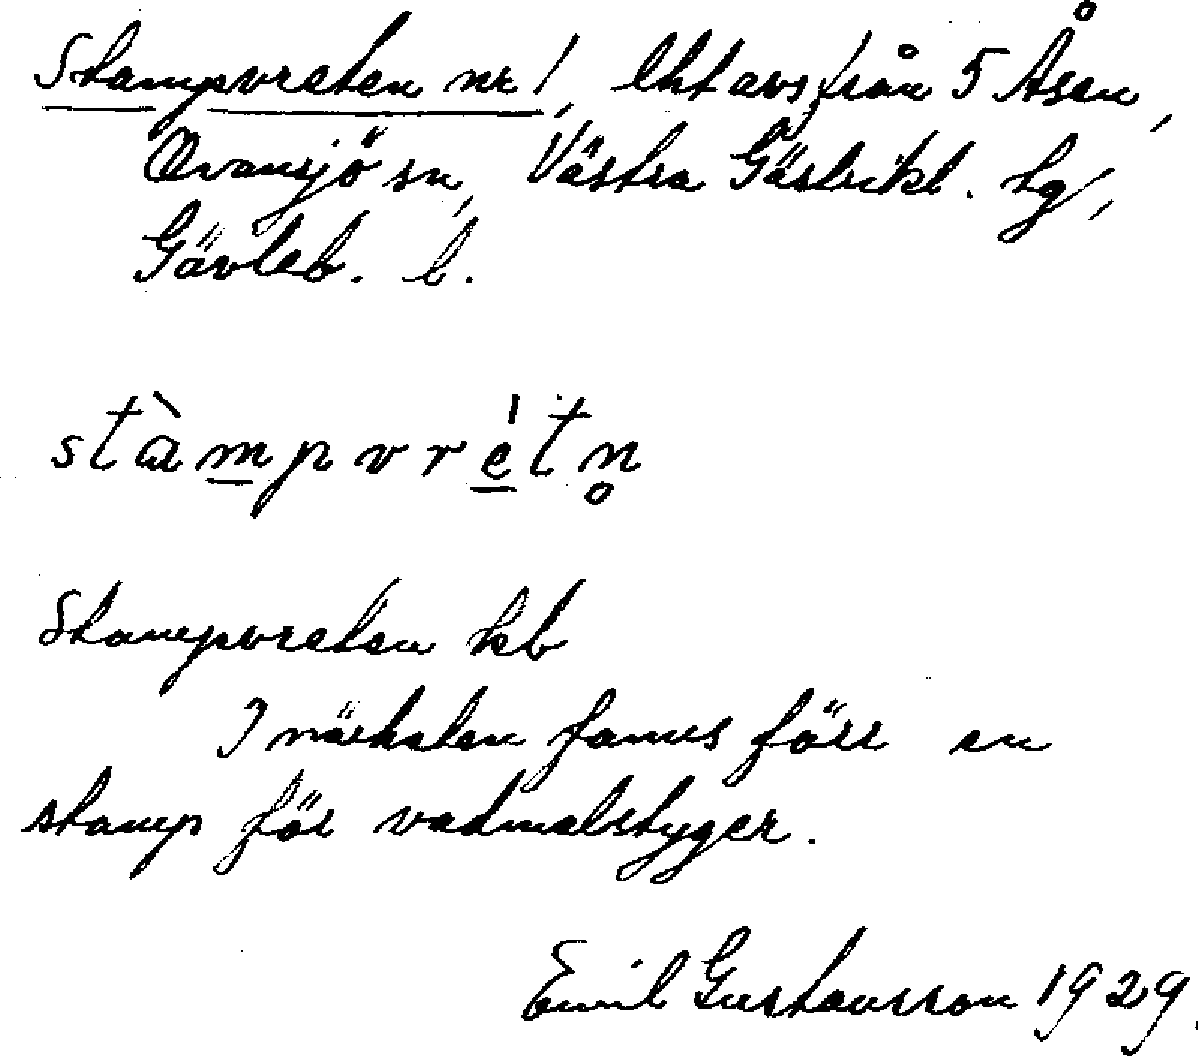 Stampvreten nr 1, lht avs från 5 Åsen,
Ovansjö sn, Västra Gästrikl. tg,
Gävleb. l.
stàmpvrétn̥
Stampvreten kb
I närheten fanns förr en
stamp för vadmalstyger.
Emil Gustavsson 1929.